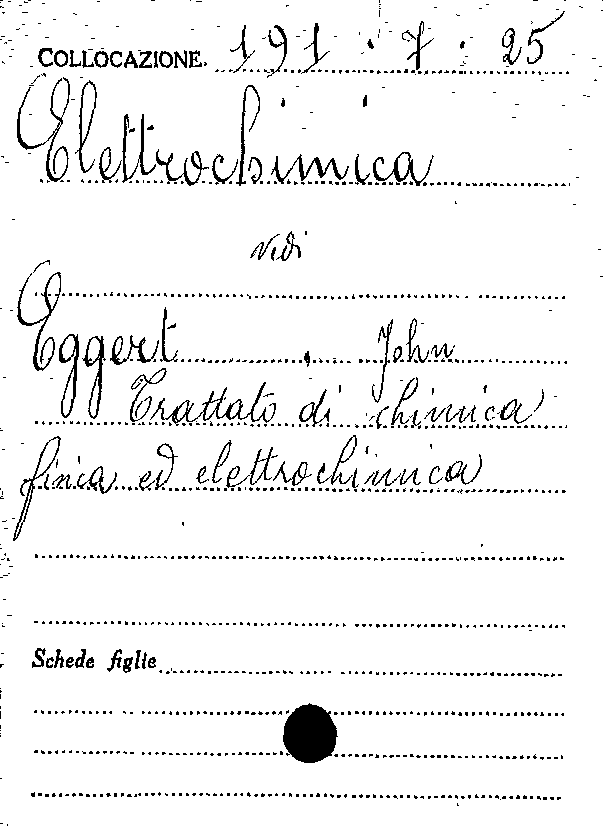 COLLOCAZIONE. 191 . 7 . 25
Elettrochimica
vedi
Eggert, John
Trattato di chimica
fisica ed elettrochimica
Schede figlie